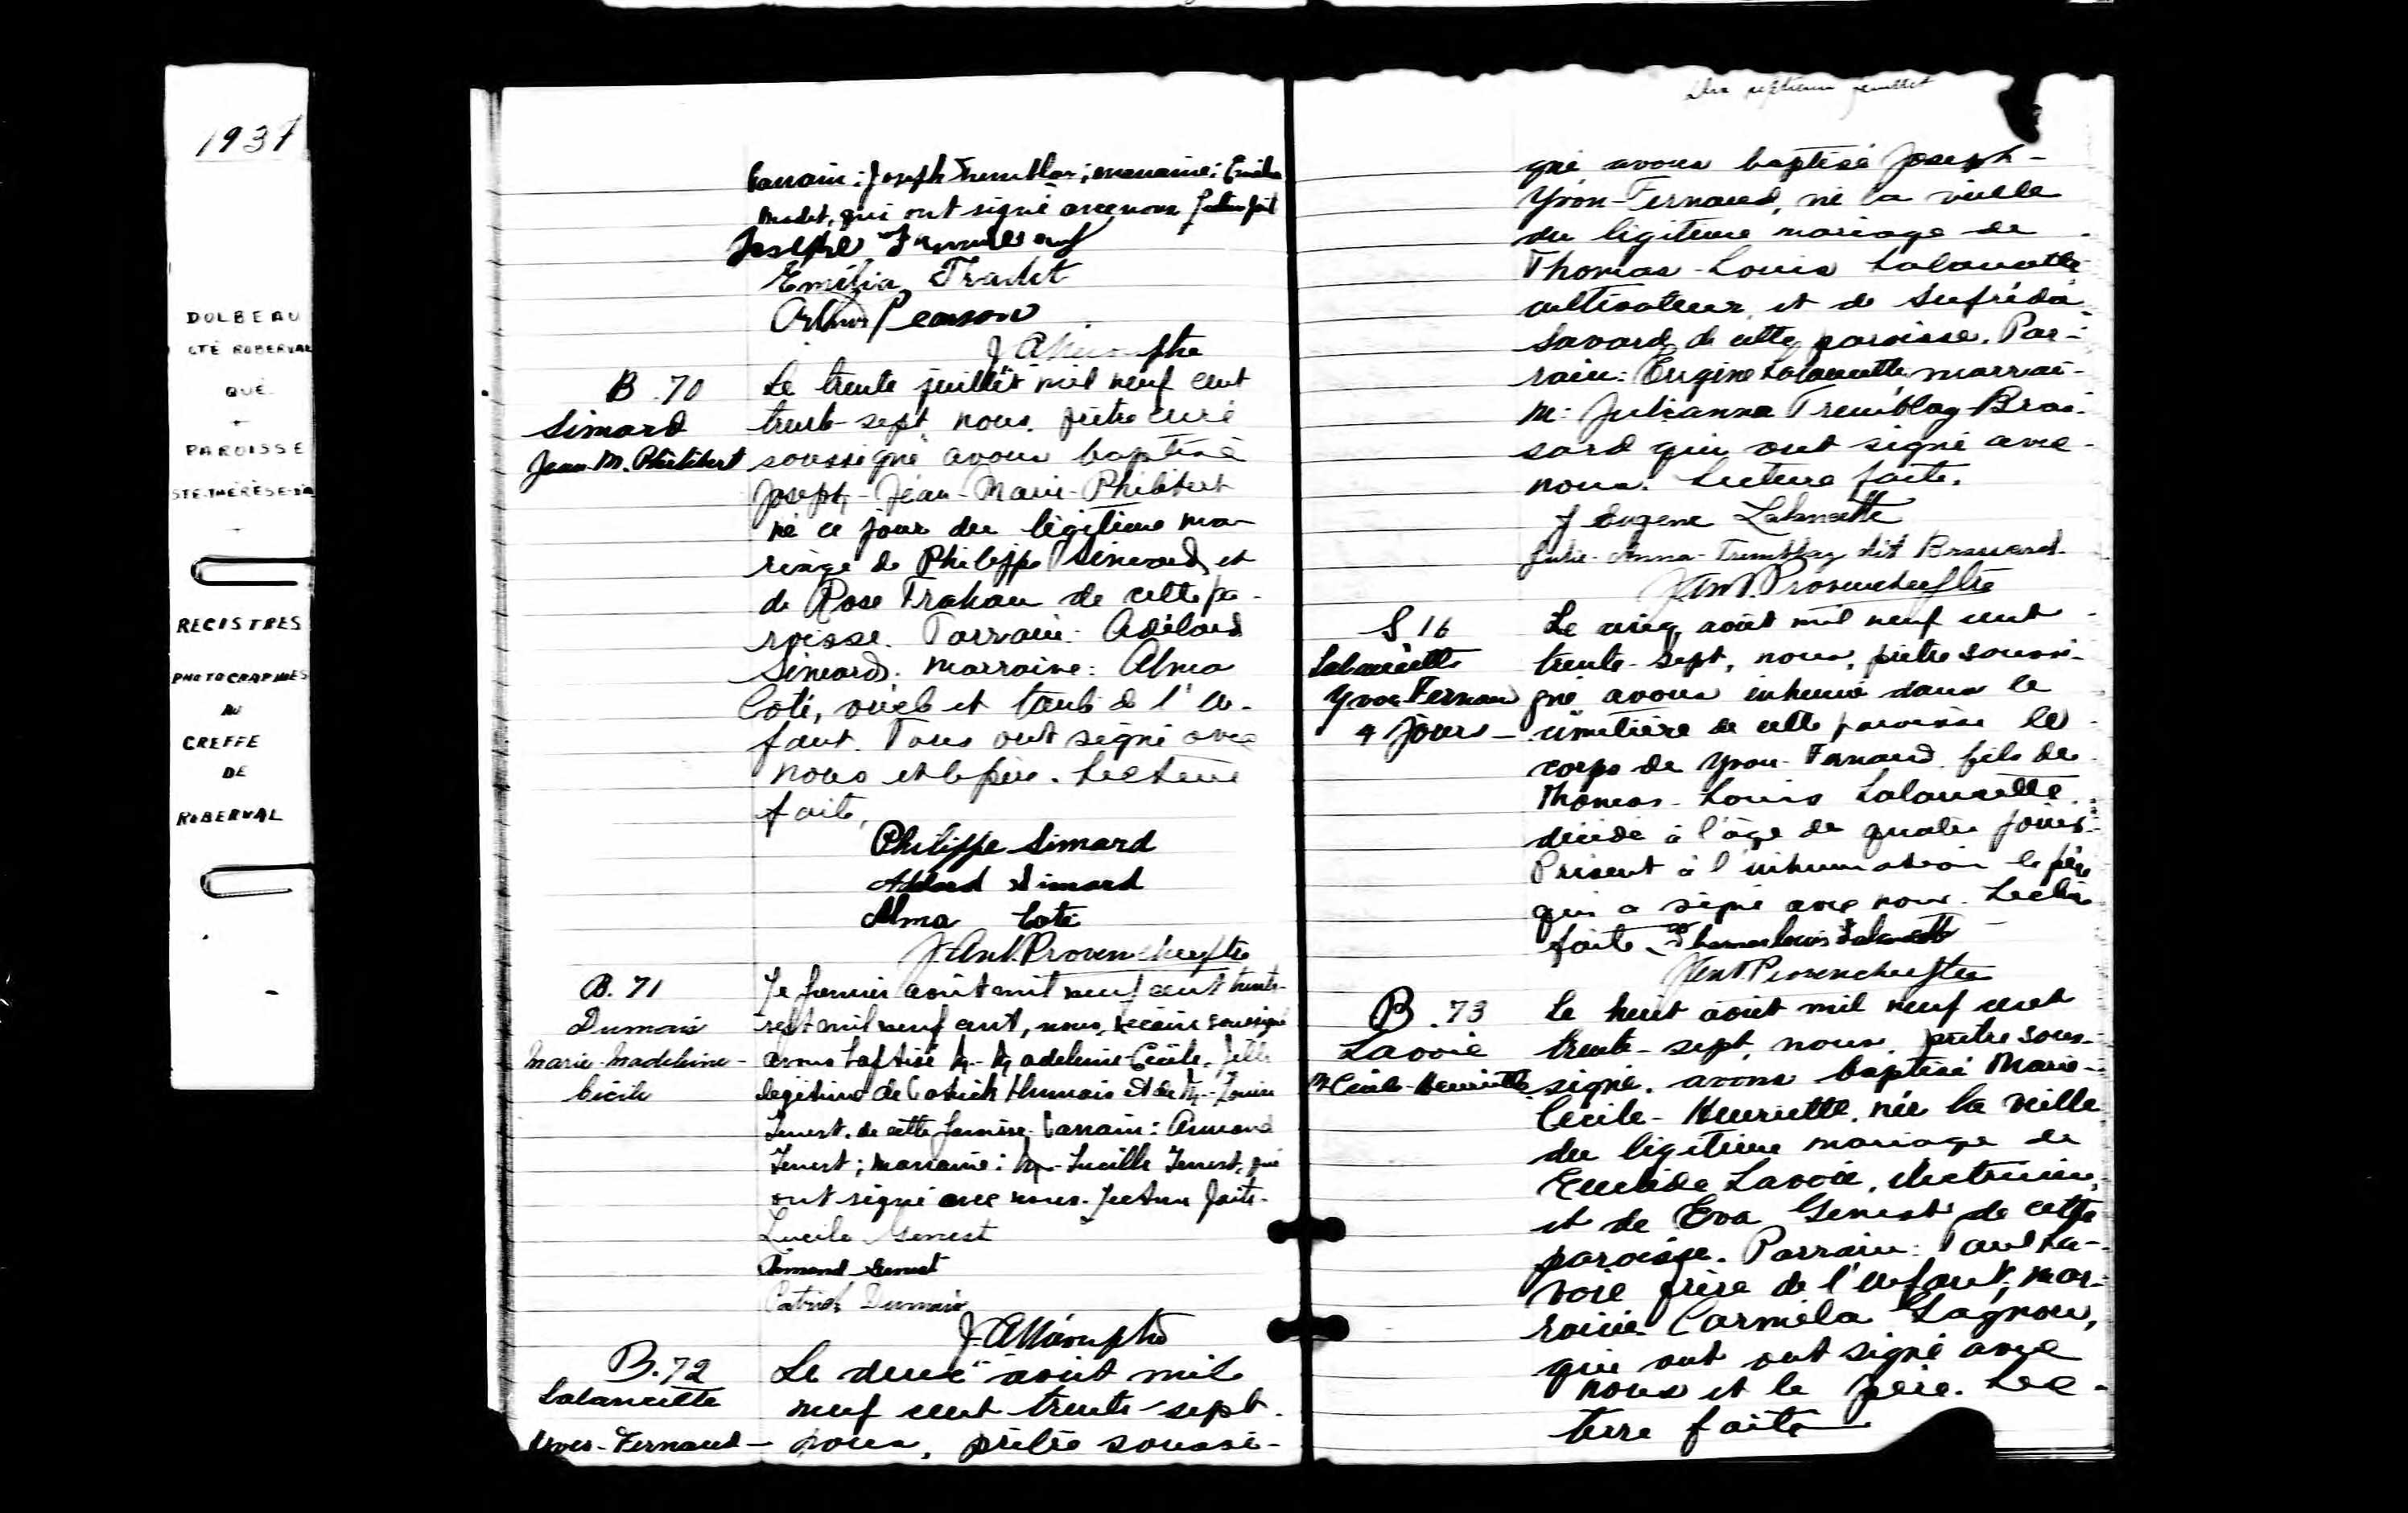 1937
DOLBEAU
CTÉ ROBERVAL
QUÉ.
PAROISSE
STE-THÉRÈSE-D'A
REGISTRES
PHOTOGRAPHIÉS
AU
GREFFE
DE
ROBERVAL
Parrain: Joseph Tremblay; marraine: Emilia
qui ont signé avec nous Lecture faite
Joseph
Emilia Tradet
Arthur Pearson
ptre
B. 70
Simard
Jean-M. Philibert
Le trente juillet mil neuf cent
trente-sept nous, prêtre curé
soussigné avons baptisé
Joseph-Jean-Marie-Philibert
né ce jour du légitime ma-
riage de Philippe Simard, et
de Rose Trahan de cette pa-
roisse. Parrain: Adélard
Simard. Marraine: Alma
Coté, oncle et tante de l'en-
fant. Tous ont signé avec
nous et le père. Lecture
faite,
Philippe Simard
Adélard Simard
Alma Coté
J. Ant. Provencher ptre
B. 71
Dumais
Marie-Madeleine-
Cécile
Le premier août mil neuf cent trente-
sept mil neuf cent, nous, vicaire soussigné
avons baptisé M.-Madeleine-Cécile, fille
légitime de Patrick Dumais et de M.-Louise
Genest, de cette paroisse. Parrain: Armand
Genest; marraine: M.-Lucille Genest, qui
ont signé avec nous. Lecture faite.
Lucile Genest
Armand Genest
Patrick Dumais
ptre
B. 72
Lalancette
Yvon-Fernand-
Le deux août mil
neuf cent trente sept.
nous, prêtre soussi-
Dix septième feuillet
gné avons baptisé Joseph-
Yvon-Fernand, né la veille
du légitime mariage de
Thomas-Louis Lalancette
cultivateur, et de
Savard de cette paroisse. Par-
rain: Eugène Lalancette, marrai-
n: Julianna Tremblay-Bras-
sard qui ont signé avec
nous. Lecture faite.
J Eugene Lalancette
Julie-Anna-Tremblay dit Brassard
J. Ant. Provencher ptre
S 16
Lalancette
Yvon Fernand
4 jours-
Le cinq août mil neuf cent
trente-sept, nous, prêtre soussi-
gné avons inhumé dans le
cimetière de cette paroisse le
corps de Yvon-Fernand fils de
Thomas-Louis Lalancette
décédé à l'âge de quatre jours.
Présent à l'inhumation le père
qui a signé avec nous. Lecture
faite Thomas Louis Lalancette
J. Ant. Provencher ptre
B. 73
Lavoie
M-Cécile-Henriette
Le huit août mil neuf cent
trente-sept, nous, prêtre sous-
signé, avons baptisé Marie-
Cécile-Henriette, née la veille
du légitime mariage de
Euclide Lavoie, électricien,
et de Eva Genest de cette
paroisse. Parrain: Paul La-
voie frère de l'enfant; mar-
raine Carmela Gagnon,
qui ont ont signé avec
nous et le père. Lec-
ture faite